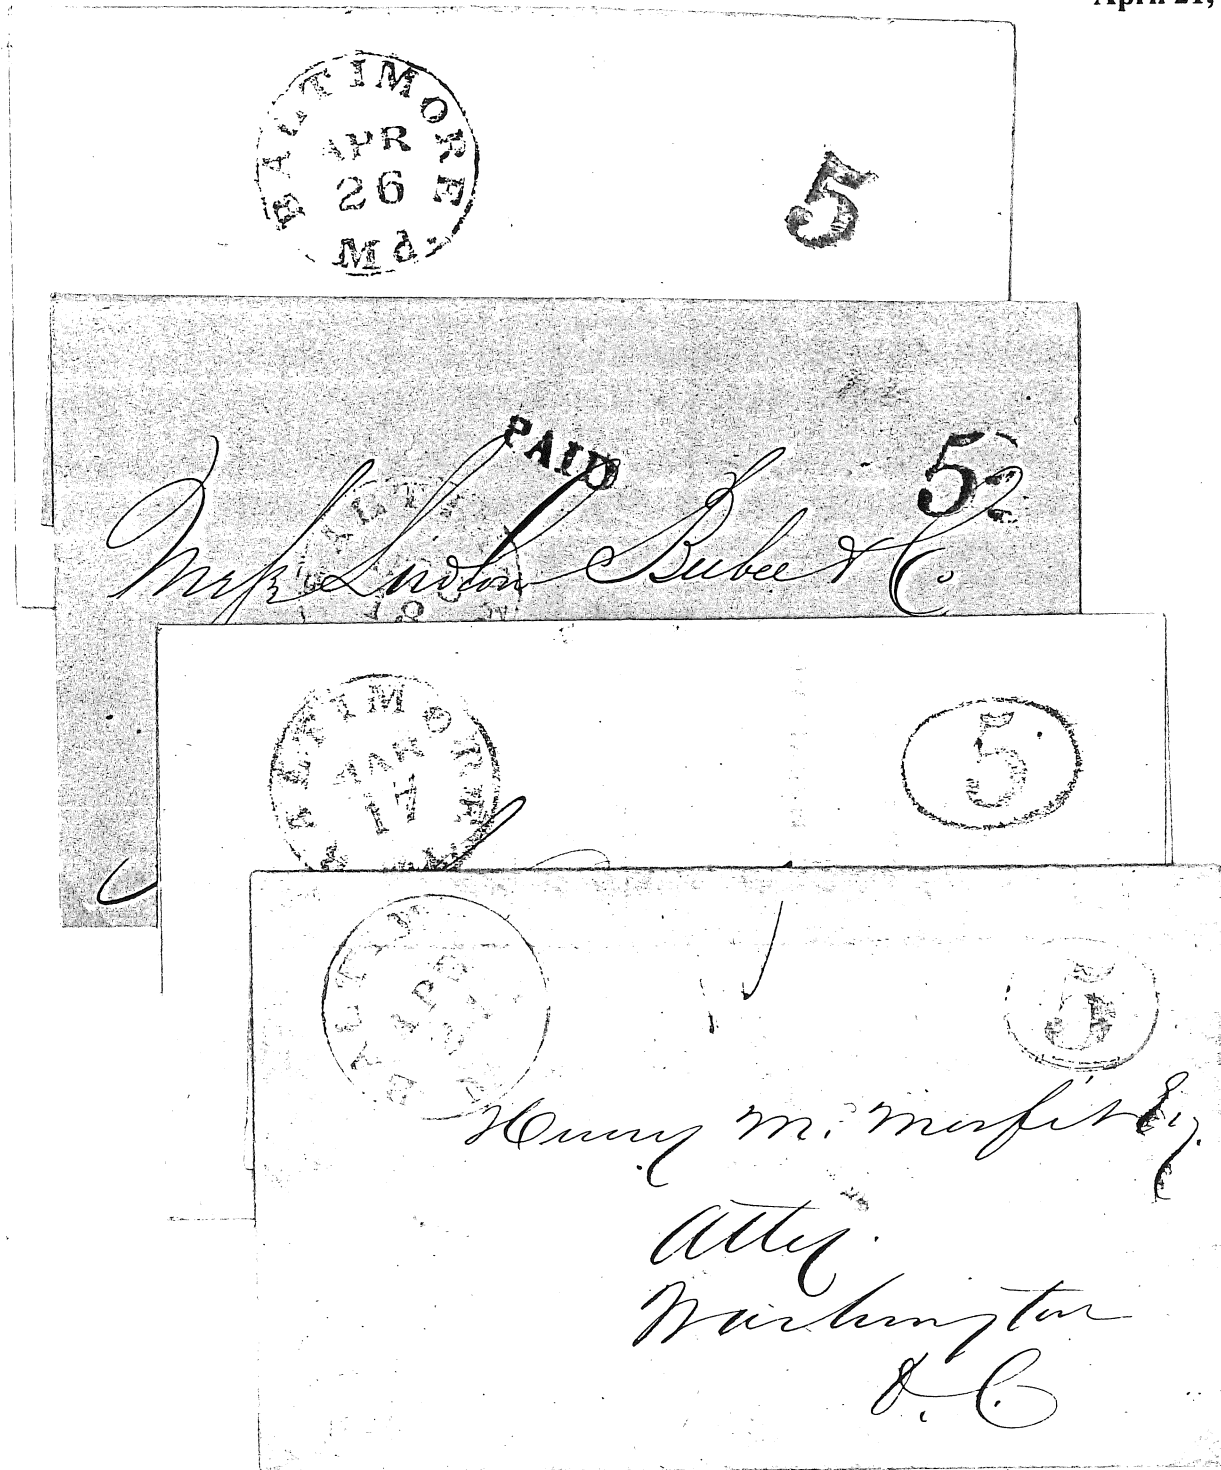 April 21,
BALTIMORE
APR
26
Md.
5
PAID
5
Mess Ludlow Beebee & Co.
BALTIMORE
MAR
17
5
BALTIM
APR
5
Henry M. Morfit Esq
Atty.
Washington
D. C.